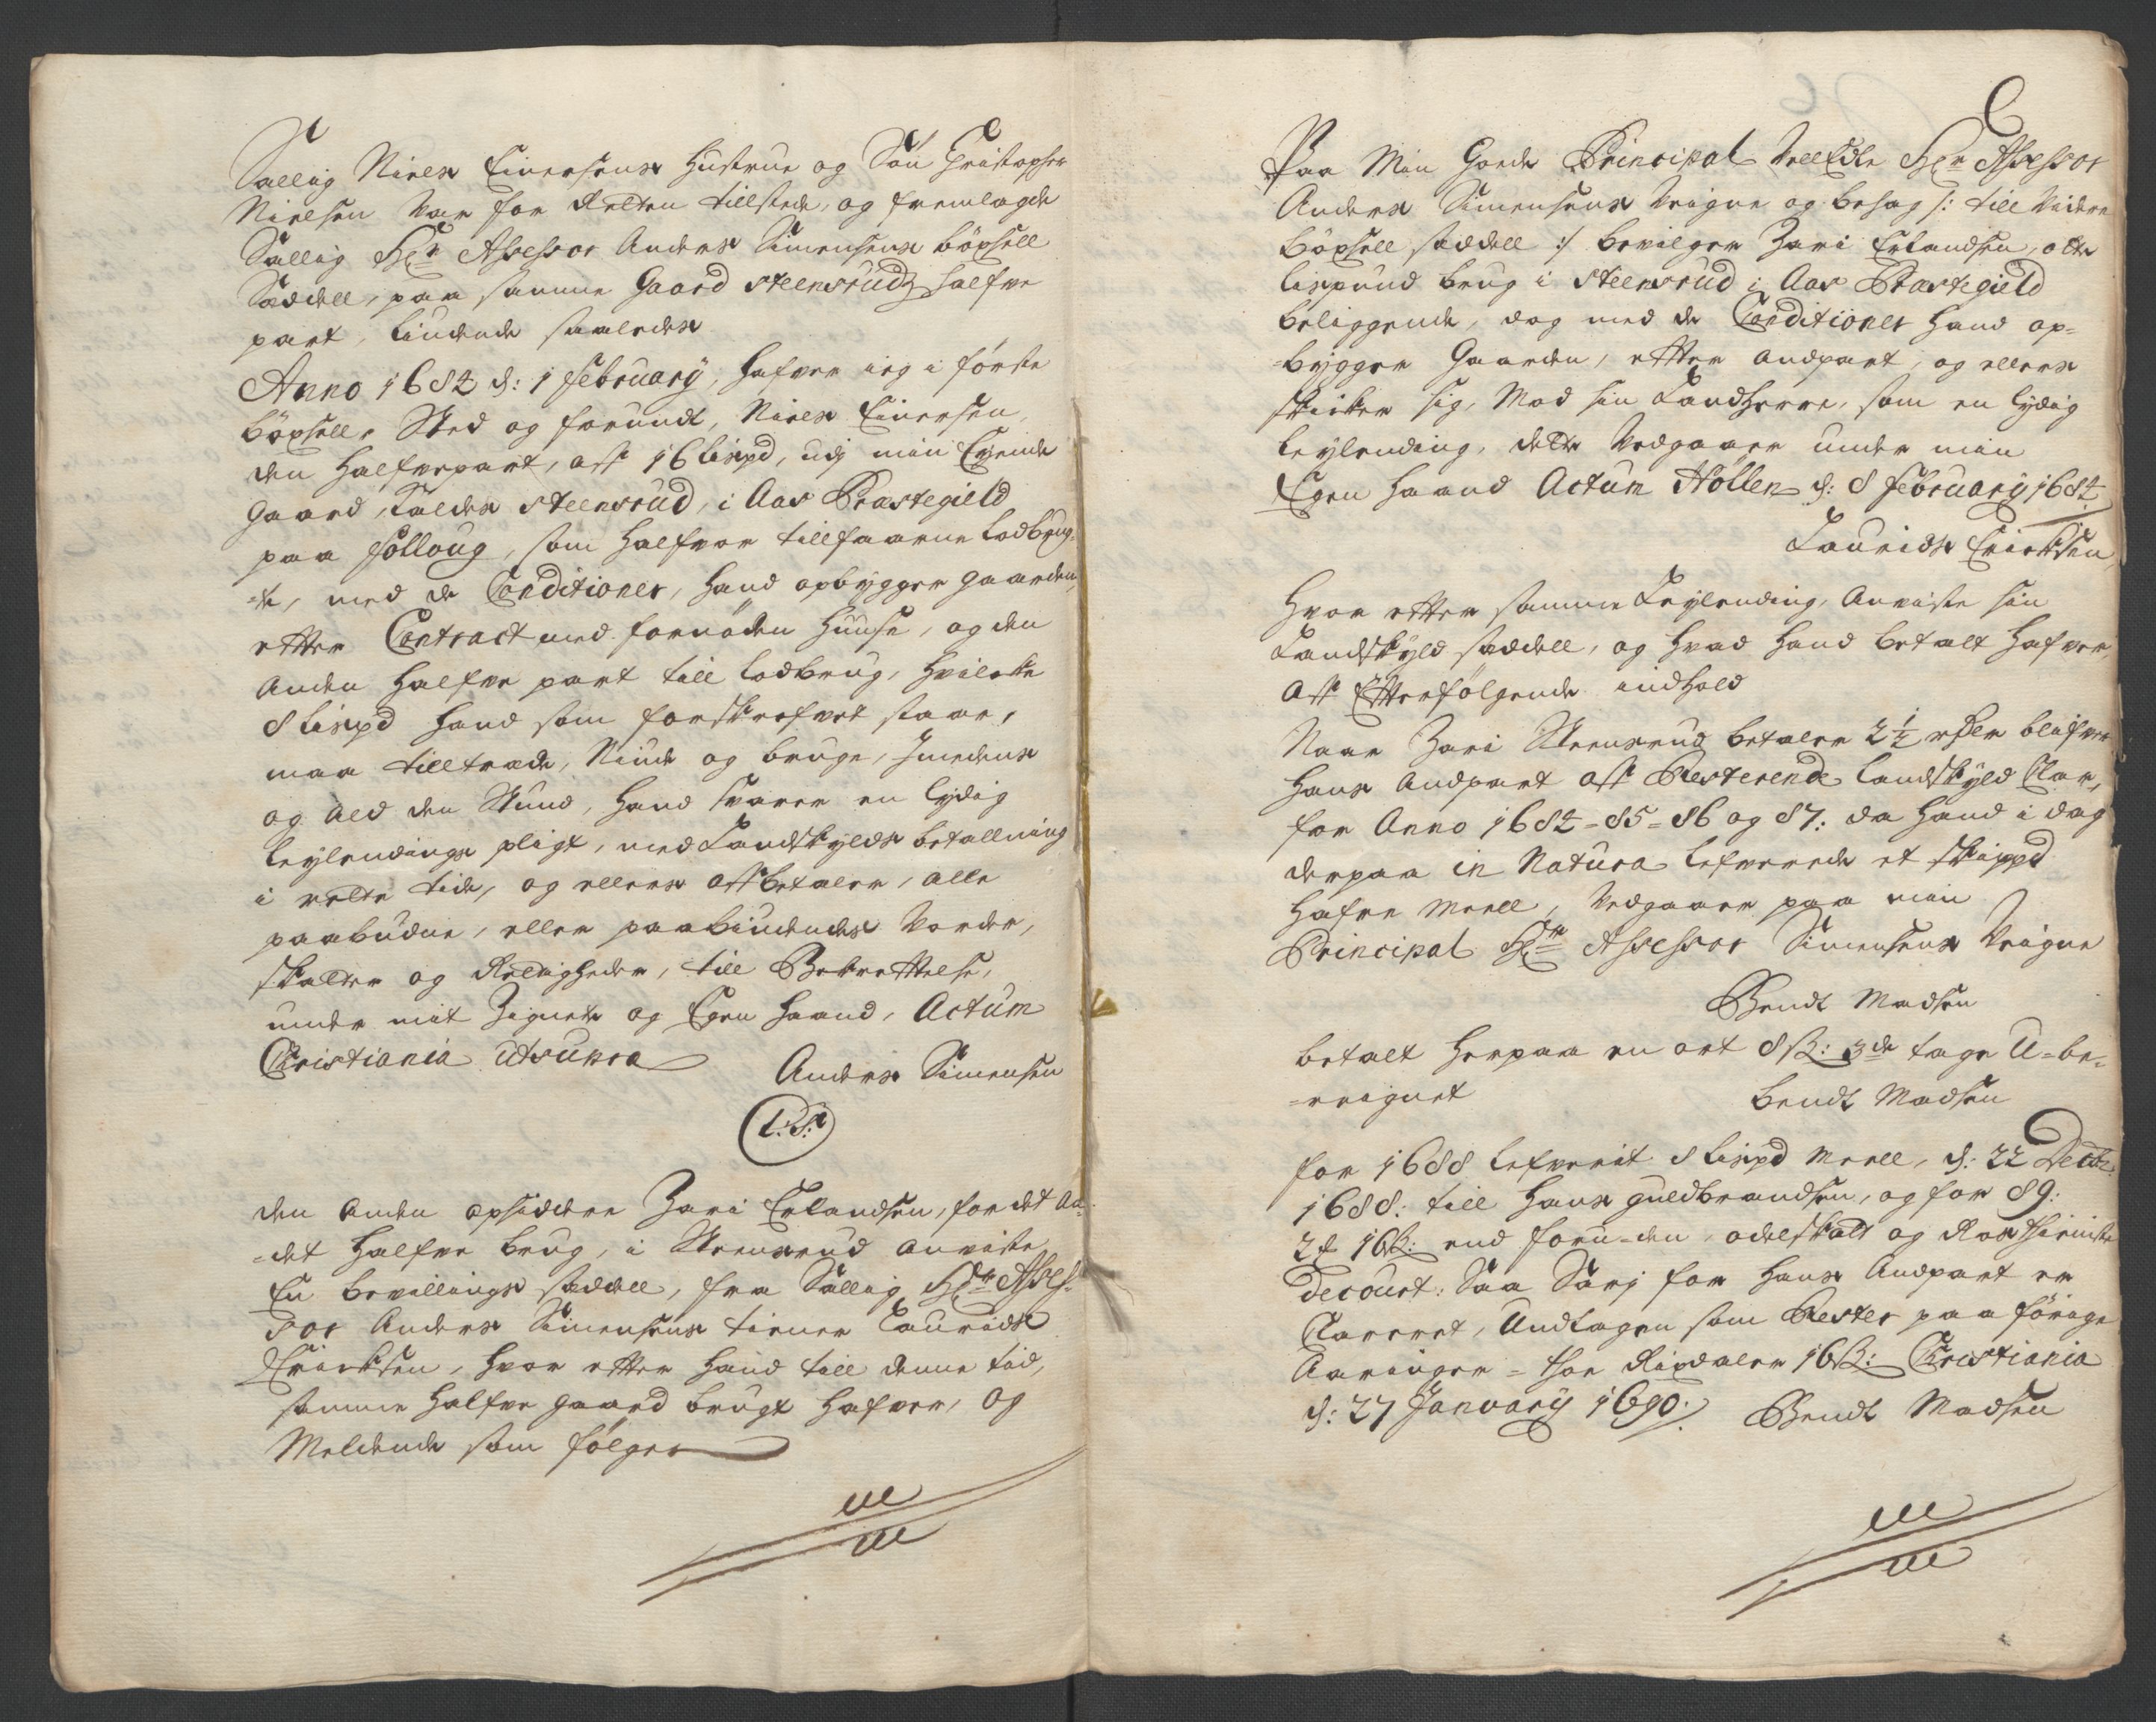 Sallig Niels Einersens Hustrue og Søn Christopher
Nielsen Var for Retten tillstede, og fremlagde
Sallig Hr Assessor Anders Simensens böxsell
Sæddell, paa samme Gaard Steensrudz halfve
part, liudende saaledes
Anno 1684 d: 1 february, hafver ieg i förste
böxsell, Sted og forundt, Niels Einersen
den halfvepart, aff 16 lispd, udj min Eyende
gaard, kaldes Steensrud, i Aas Præstegield
paa folloug, som halfvor tillfaarne lodbrug-
-te, med de Conditioner, hand opbygger gaarden,
etter Contract med fornöden Huuse, og den
Anden halfve part till lodbrug, hvilcke
8 lispd hand som forskrefvet staar,
maa tilltræde, Niude og bruge, Imedens
og all den Stund, hand svarer en lydig
leylendings pligt, med Landskylds betallning
i rette tide, og ellers aff betaler, alle
paabudne, eller paabiudendes Vorder,
skatter og Rettigheder, till Bekræftelse,
under mit Zignete og Egen haand, Actum
Christiania ut supra
Anders Simensen
L.S.
den Anden opsiddere Zari Erlandsen, for det An-
-det halfve brug, i Steensrud anviste
En bevillings sæddell, fra Sallig Hr Asses-
sor Anders Simensens tiener Laurids
Ericksen, hvor etter hand till denne tid,
samme halfve gaard brugt hafver, og
Meldende som fölger
Paa Min Goede Principal VellEdle Hr Assessor
Anders Simensens Veigne og behag /: till Videre
böxsell sæddell :/ bevilger Zari Erlandsen, otte
lispund brug i Steensrud i Aas Præstegield
beliggende, dog med de Conditioner hand op-
-bygger Gaarden, etter Andpart, og ellers
skicker sig, Mod sin Landherre, som en lydig
leylending, dette Vedgaaer under min
Egen haand Actum Höllen d: 8 february 1684
Laurids Ericksen
Hvor etter samme Leylending, Anviste sin
Landskyld sæddell, og hvad hand betalt hafver,
Aff Efterfölgende indhold
Naar Zari Steensrud betaler 2½ rdlr blifver
hans Andpart aff Resterende landskyld klar,
for Anno 1684-85-86 og 87: da hand i dag
derpaa in Natura lefverede et skippd
hafre Meell, Vedgaaer paa min
Principal Hr Assessor Simensens Veigne
Bendt Madsen
betalt herpaa en ort 8 ß: 3de tage U-be-
-reignet
Bendt Madsen
for 1688 lefverit 8 lispd Meell, d: 22 Decbr
1688: till Hans guldbrandsen, og for 89:
16 ß: end foru-den, odelskatt og Rostieniste
decourt: Saa Vidt for hans Andpart er
klareret, Undtagen som Rester paa förrige
Aaringer - thoe Rixdaler 16 ß: Christiania
d: 27 January 1690.
Bendt Madsen